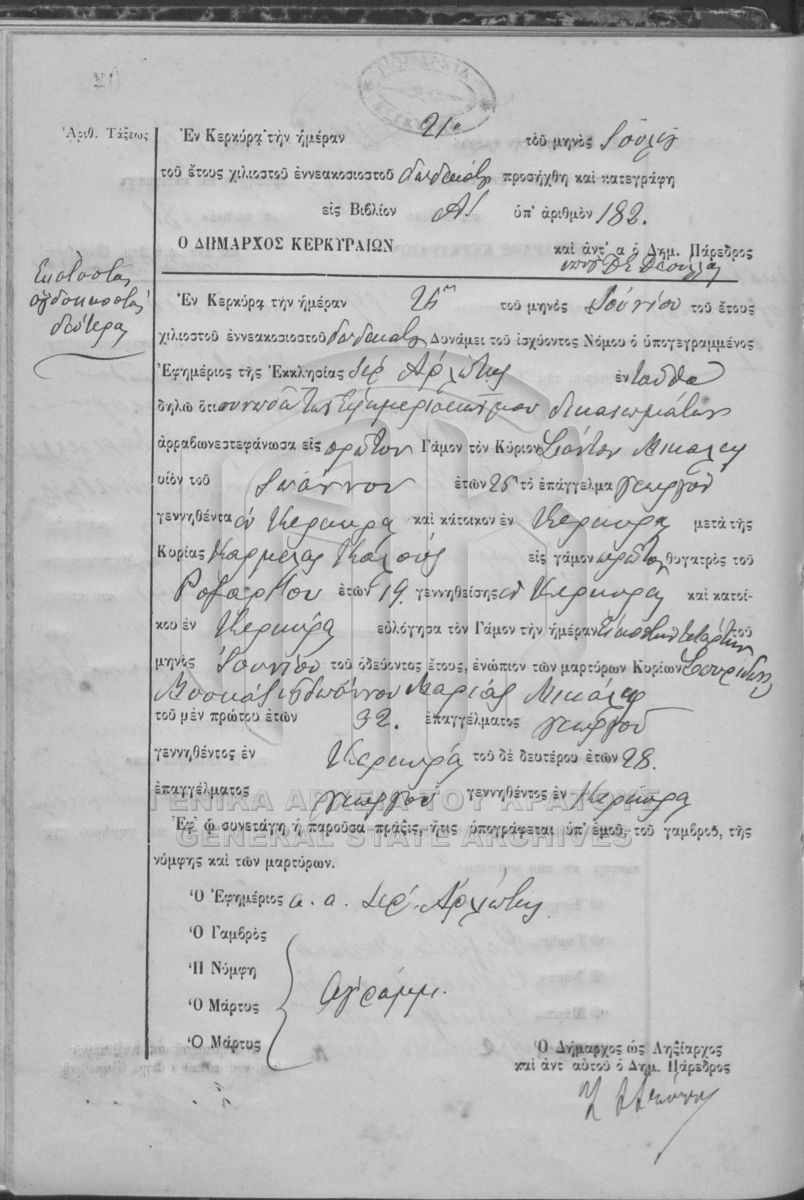 Ἀριθ. Τάξεως
Ἐν Κερκύρᾳ τὴν ἡμέραν 21ην τοῦ μηνὸς Ἰουλίου
τοῦ ἔτους χιλιοστοῦ ἐννεακοσιοστοῦ δωδεκάτου προσήχθη καὶ κατεγράφη
εἰς Βιβλίον Α' ὑπ' ἀριθμὸν 182.
Ο ΔΗΜΑΡΧΟΣ ΚΕΡΚΥΡΑΙΩΝ καὶ ἀντ' α ὁ Δημ. Πάρεδρος
Ἑκατοστὸς
ὀγδοηκοστὸς
δεύτερος
Ἐν Κερκύρᾳ τὴν ἡμέραν τοῦ μηνὸς Ἰουνίου τοῦ ἔτους
χιλιοστοῦ ἐννεακοσιοστοῦ δωδεκάτου Δυνάμει τοῦ ἰσχύοντος Νόμου ὁ ὑπογεγραμμένος
Ἐφημέριος τῆς Ἐκκλησίας ἐνταῦθα
δηλῶ ὅτι συνῳδὰ τῶν ἐφημεριακῶν μου δικαιωμάτων
ἀρραβωνεστεφάνωσα εἰς πρῶτον Γάμον τὸν Κύριον
υἱὸν τοῦ Ἰωάννου ἐτῶν 25 τὸ ἐπάγγελμα γεωργοῦ
γεννηθέντα ἐν Κερκύρᾳ καὶ κάτοικον ἐν Κερκύρᾳ μετὰ τῆς
Κυρίας Καρμέλας εἰς γάμον πρῶτον θυγατρὸς τοῦ
ἐτῶν 19. γεννηθείσης ἐν Κερκύρᾳ καὶ κατοί-
κου ἐν Κερκύρᾳ εὐλόγησα τὸν Γάμον τὴν ἡμέραν εἰκοστὴν τετάρτην τοῦ
μηνὸς Ἰουνίου τοῦ ὁδεύοντος ἔτους, ἐνώπιον τῶν μαρτύρων Κυρίων
τοῦ μὲν πρώτου ἐτῶν 32. ἐπαγγέλματος γεωργοῦ
γεννηθέντος ἐν Κερκύρᾳ τοῦ δὲ δευτέρου ἐτῶν 28.
ἐπαγγέλματος γεωργοῦ γεννηθέντος ἐν Κερκύρᾳ
ΓΕΝΙΚΑ ΑΡΧΕΙΑ ΤΟΥ ΚΡΑΤΟΥΣ
Ἐφ' ᾧ συνετάγη ἡ παροῦσα πράξις, ἥτις ὑπογράφεται ὑπ' ἐμοῦ, τοῦ γαμβροῦ, τῆς
GENERAL STATE ARCHIVES
νύμφης καὶ τῶν μαρτύρων.
Ὁ Ἐφημέριος
Ὁ Γαμβρὸς
Ἡ Νύμφη
Ὁ Μάρτυς
Ὁ Μάρτυς
ἀγράμμ.
Ὁ Δήμαρχος ὡς Ληξίαρχος
καὶ ἀντ' αὐτοῦ ὁ Δημ. Πάρεδρος